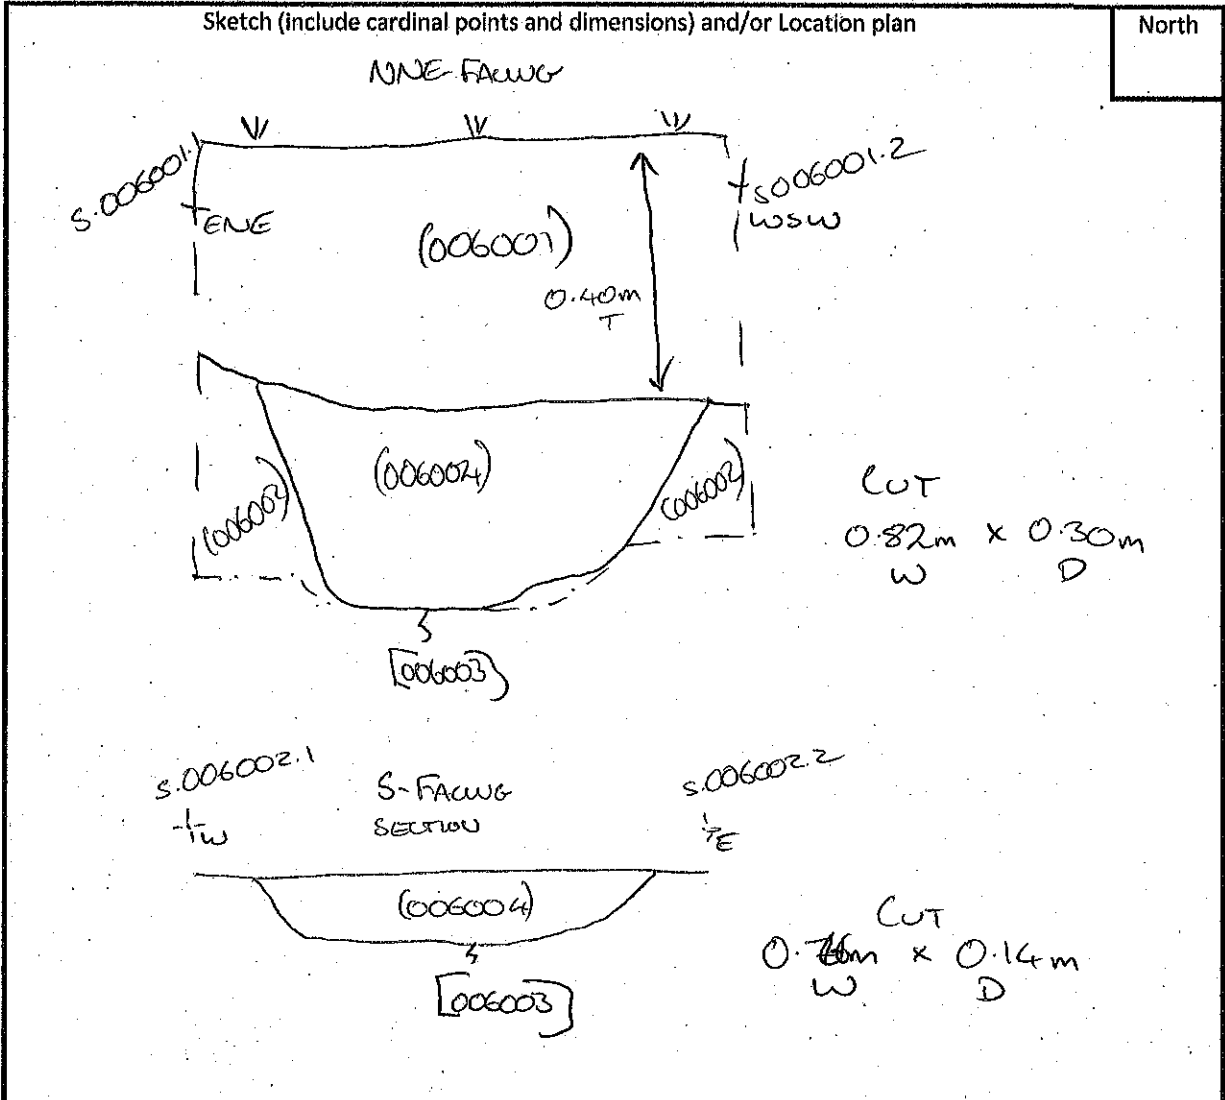 Sketch (include cardinal points and dimensions) and/or Location plan
North
NNE-FACING
S.006001.1
S006001.2
ENE
WSW
(006001)
0.40m
T
(006002)
(006004)
(006002)
CUT
0.82m x 0.30m
W D
[006003]
S.006002.1
S-FACING
SECTION
S.006002.2
W
E
(006004)
CUT
0.76m x 0.14m
W D
[006003]